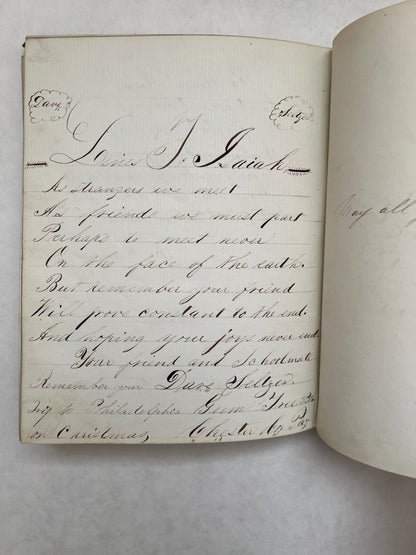 Dave
Seltzer
Lines To Isaiah
As strangers we meet
As friends we must part
Perhaps to meet never
On the face of the earth.
But remember your friend
Will prove constant to the end.
And hoping your joys never end.
Your friend and Schoolmate
Remember our Dave Seltzer
Trip to Philadelphia Gum Tree P.O.
on Christmas, Chester Co, Pa.
May all